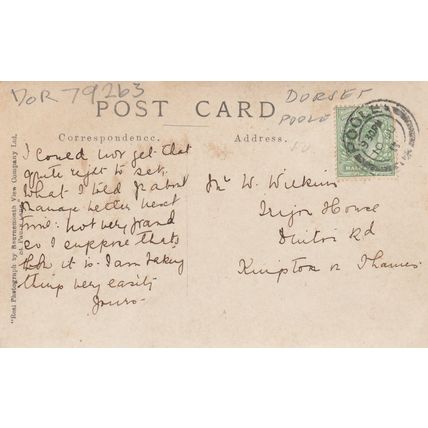 DOR 79263
DORSET
POOLE
POST CARD
Correspondence.
Address.
I could not get that
quite right to set,
what I told you about
manage better next
time. not very grand
so I suppose thats
how it is. I am taking
things very easily
Yours
Mr W. Wilkins
House
Rd
Kingston on Thames
POOLE
9 30PM
HALF
"Real Photograph by Bournemouth View Company Ltd.